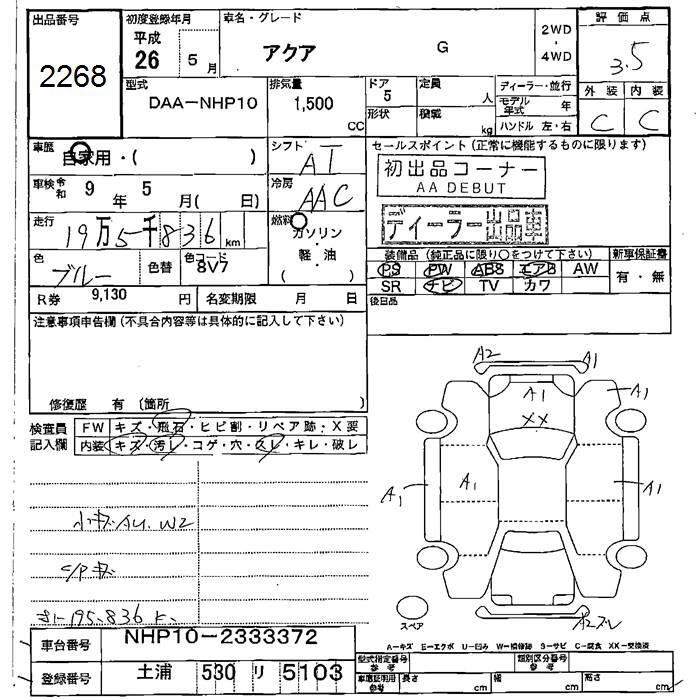 出品番号 初度登録年月 車名・グレード 2WD・4WD 評価点
2268 平成 26 5月 アクア G 3.5
型式 排気量 ドア 定員 ディーラー・並行 外装 内装
DAA-NHP10 1,500 CC 5 人 モデル年式 年 C C
形状 積載 kg ハンドル 左・右
車歴 自家用・( ) シフト AT セールスポイント (正常に機能するものに限ります)
車検 令和 9年 5月( 日) 冷房 AAC 初出品コーナー
AA DEBUT
走行 19万5千836 km 燃料 ガソリン・軽・油 ( ) ディーラー出品車
色 ブルー 色替 色コード 8V7 装備品 (純正品に限り○をつけて下さい) 新車保証書
PS PW ABS エアB AW 有・無
R券 9,130 円 名変期限 月 日 SR ナビ TV カワ
注意事項申告欄 (不具合内容等は具体的に記入して下さい) 後日品
修復歴 有 (箇所 )
検査員 FW キズ・飛石・ヒビ割・リペア跡・X要
記入欄 内装 キズ・汚レ・コゲ・穴・スレ・キレ・破レ
A2 A1
A1 A1
XX
A1 A1 A1
小キズAU. W2
C/Pキズ
195.836 K
スペア A2スレ
A-キズ E-エクボ U-凹み W-補修跡 S-サビ C-腐食 XX-交換済
車台番号 NHP10-2333372 型式指定番号 参考 類別区分番号 参考
登録番号 土浦 530 リ 5103 車庫証明用 参考 長さ cm 幅 cm 高さ cm